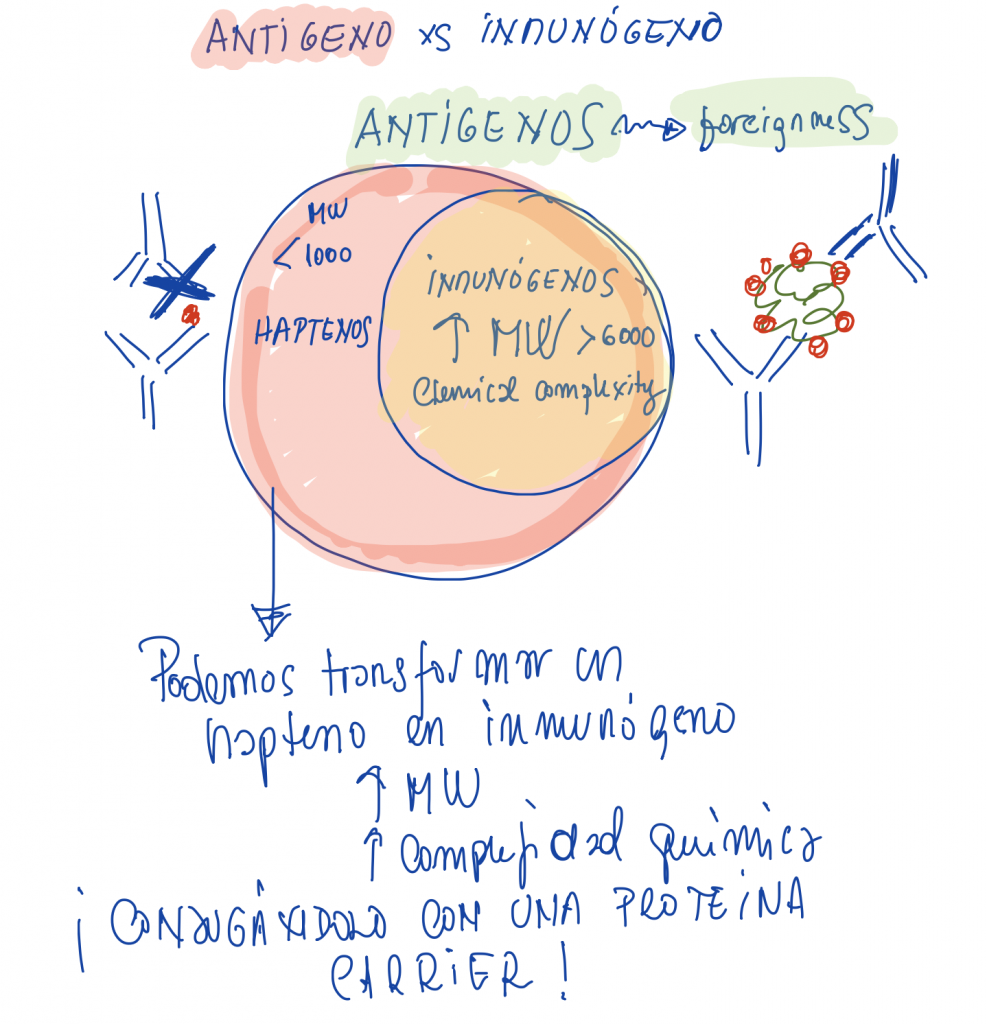 ANTÍGENO vs INMUNÓGENO
ANTÍGENOS → foreignness
MW
< 1000
HAPTENOS
INMUNÓGENOS
↑ MW > 6000
Chemical complexity
Podemos transformar un
hapteno en inmunógeno
↑ MW
↑ complejidad química
¡ CONJUGÁNDOLO CON UNA PROTEÍNA
CARRIER !